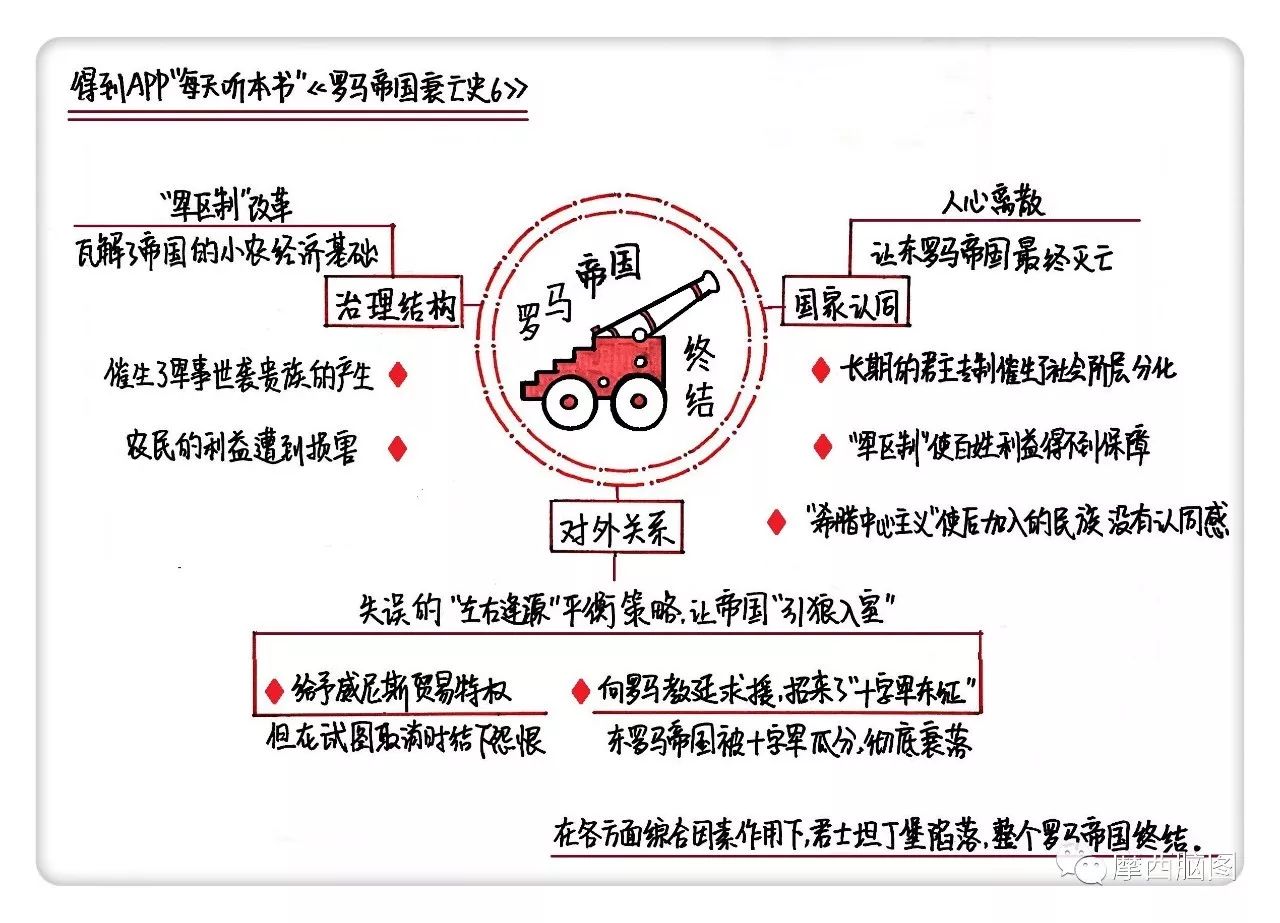 得到APP"每天听本书"《罗马帝国衰亡史6》
"军区制"改革
瓦解了帝国的小农经济基础
治理结构
催生了军事世袭贵族的产生
农民的利益遭到损害
罗马帝国终结
人心离散
让东罗马帝国最终灭亡
国家认同
长期的君主专制催生了社会阶层分化
"军区制"使百姓利益得不到保障
"希腊中心主义"使后加入的民族没有认同感
对外关系
失误的"左右逢源"平衡策略,让帝国"引狼入室"
给予威尼斯贸易特权
但在试图取消时结下怨恨
向罗马教廷求援,招来了"十字军东征"
东罗马帝国被十字军瓜分,彻底衰落
在各方面综合因素作用下,君士坦丁堡陷落,整个罗马帝国终结.
摩西脑图